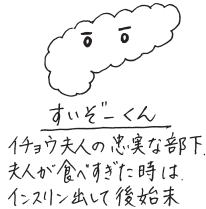 すいぞーくん
イチョウ夫人の忠実な部下.
夫人が食べすぎた時は.
インスリン出して後始末